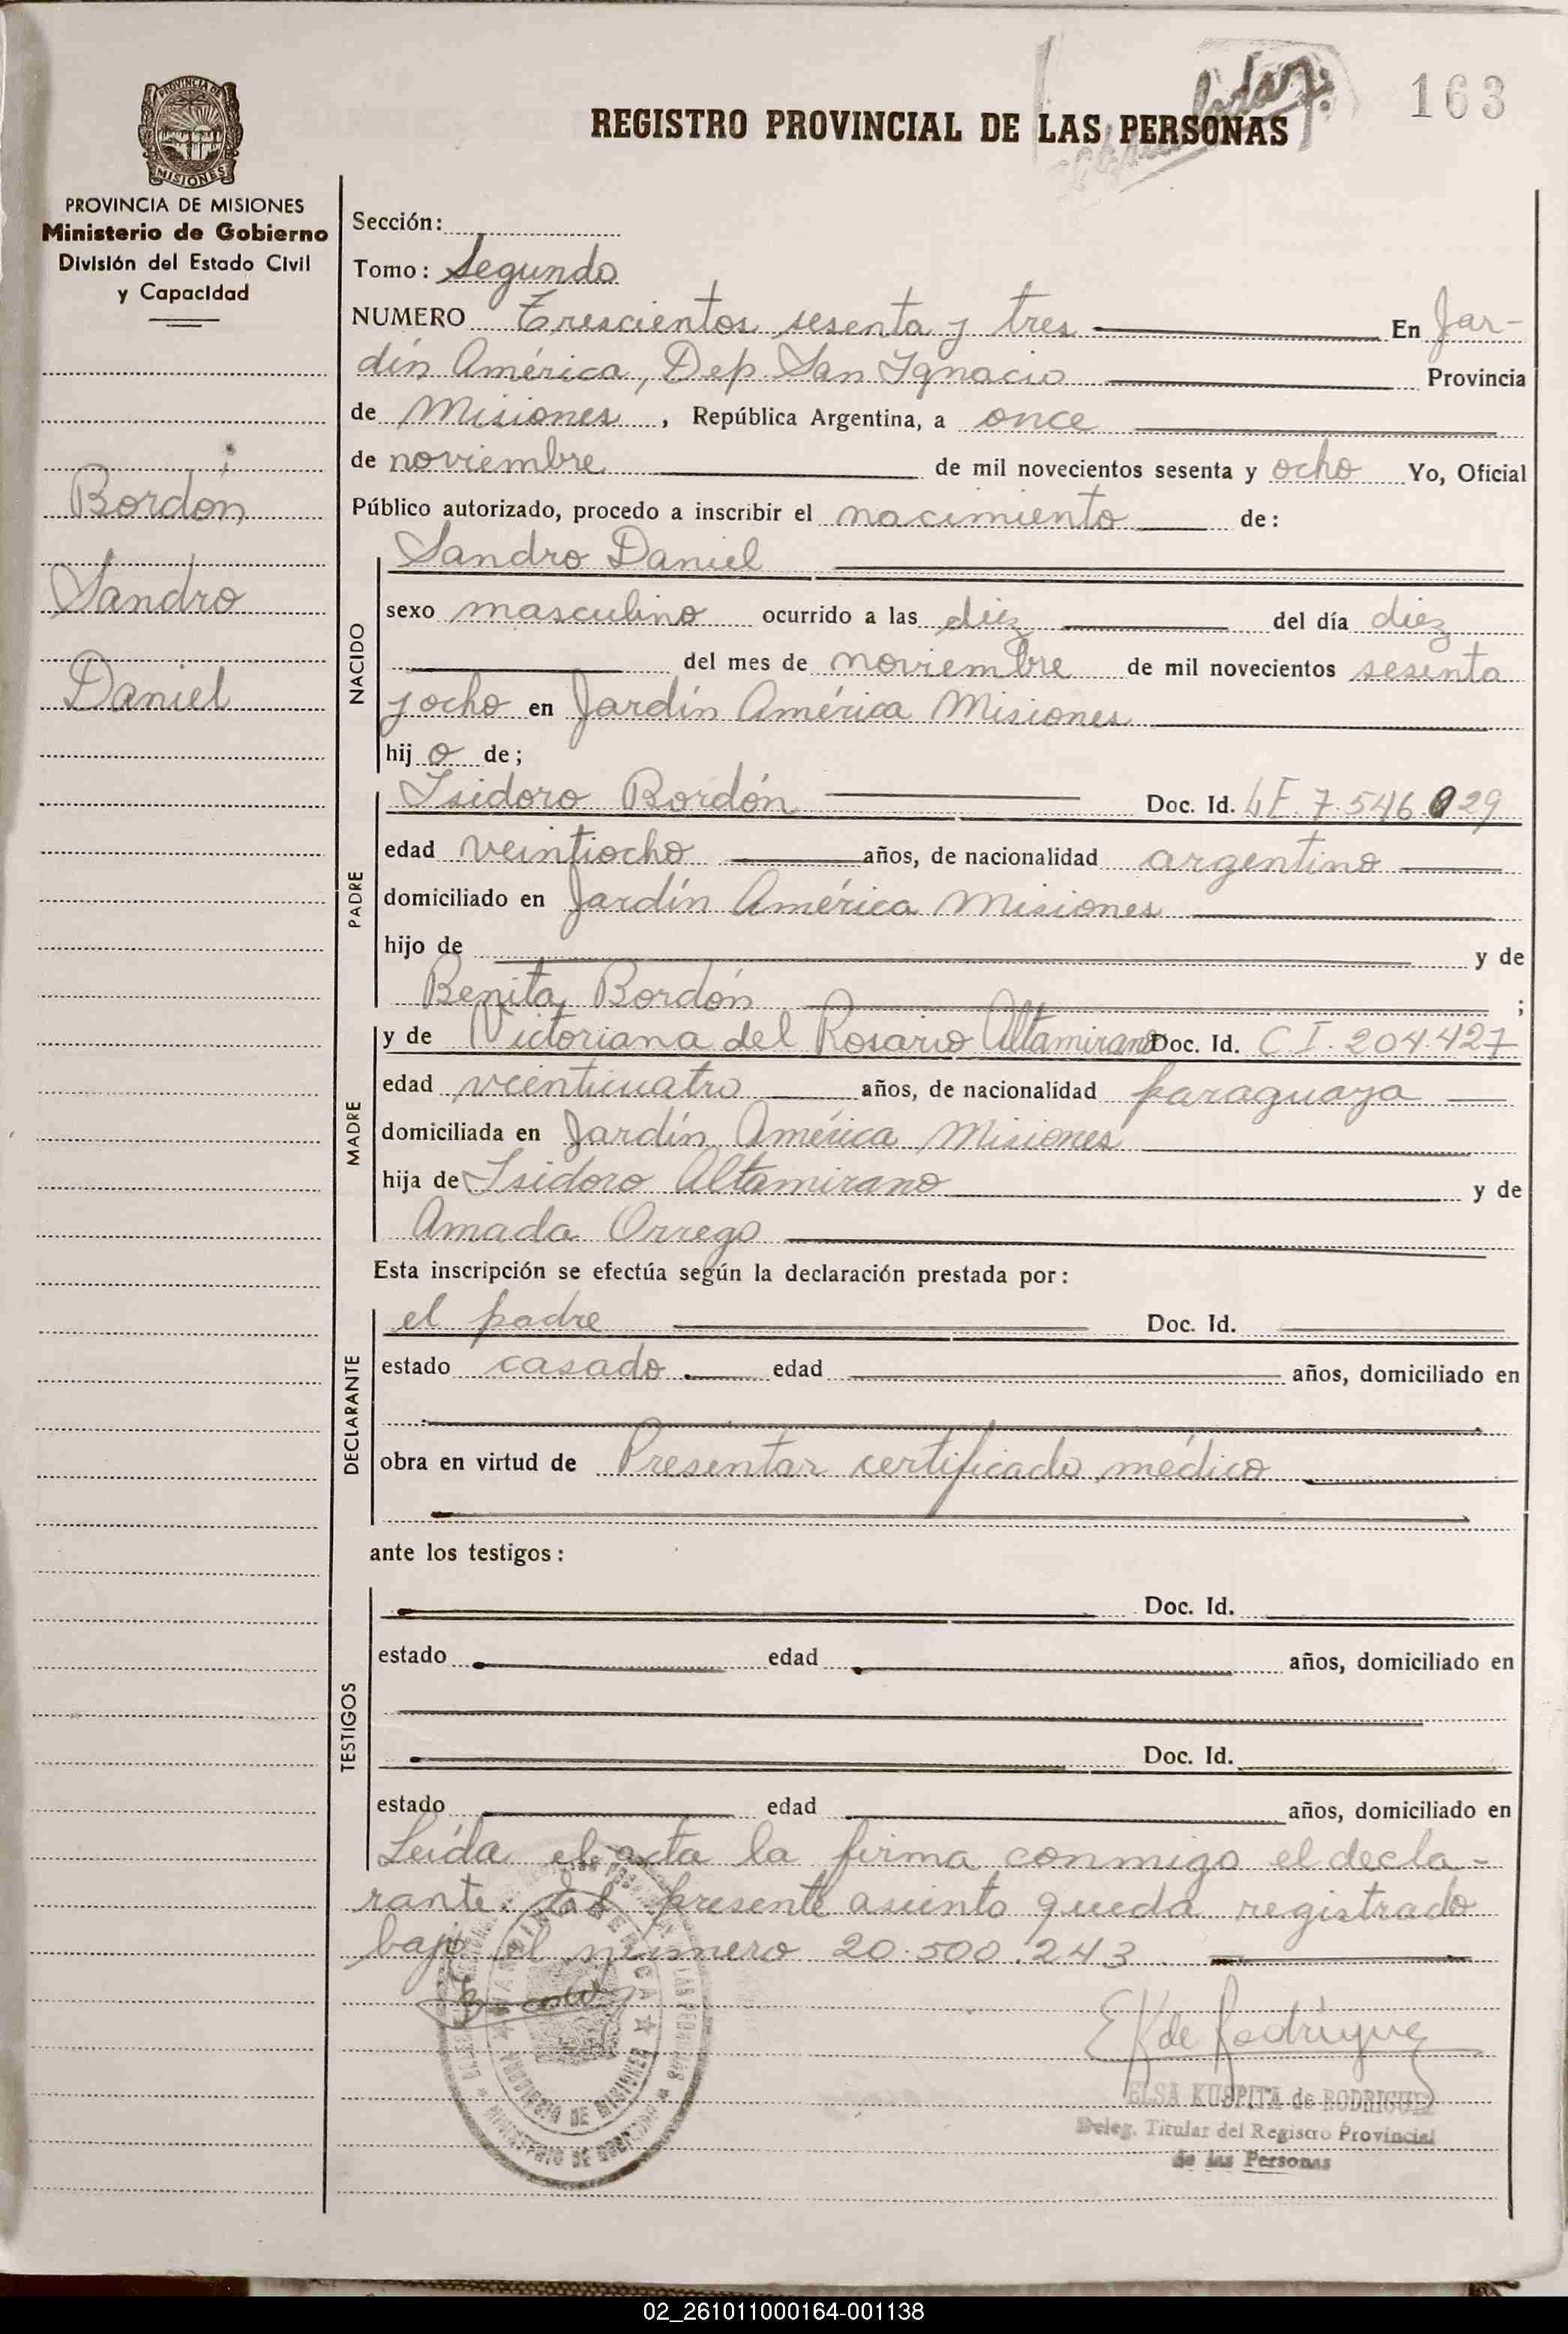 163
REGISTRO PROVINCIAL DE LAS PERSONAS
PROVINCIA DE
MISIONES
PROVINCIA DE MISIONES
Ministerio de Gobierno
División del Estado Civil
y Capacidad
Bordón
Sandro
Daniel
Sección:
Tomo: Segundo
NUMERO Trescientos sesenta y tres En Jar-
dín América, Dep. San Ignacio Provincia
de Misiones, República Argentina, a once
de noviembre de mil novecientos sesenta y ocho Yo, Oficial
Público autorizado, procedo a inscribir el nacimiento de:
NACIDO
Sandro Daniel
sexo masculino ocurrido a las diez del día diez
del mes de noviembre de mil novecientos sesenta
y ocho en Jardín América Misiones
hijo de;
PADRE
Isidoro Bordón Doc. Id. LE 7.546.029
edad veintiocho años, de nacionalidad argentino
domiciliado en Jardín América Misiones
hijo de y de
Benita Bordón ;
MADRE
y de Victoriana del Rosario Altamirano Doc. Id. C I. 204.427
edad veinticuatro años, de nacionalidad paraguaya
domiciliada en Jardín América Misiones
hija de Isidoro Altamirano y de
Amada Orrego
Esta inscripción se efectúa según la declaración prestada por:
DECLARANTE
el padre Doc. Id.
estado casado edad años, domiciliado en
obra en virtud de Presentar certificado médico
ante los testigos:
TESTIGOS
Doc. Id.
estado edad años, domiciliado en
Doc. Id.
estado edad años, domiciliado en
Leída el acta la firma conmigo el decla-
rante. El presente asiento queda registrado
bajo el número 20.500.243
EK de Rodríguez
ELSA KUSPITA de RODRIGUEZ
Deleg. Titular del Registro Provincial
de las Personas
PROVINCIA DE MISIONES
MINISTERIO DE GOBIERNO
02_261011000164-001138